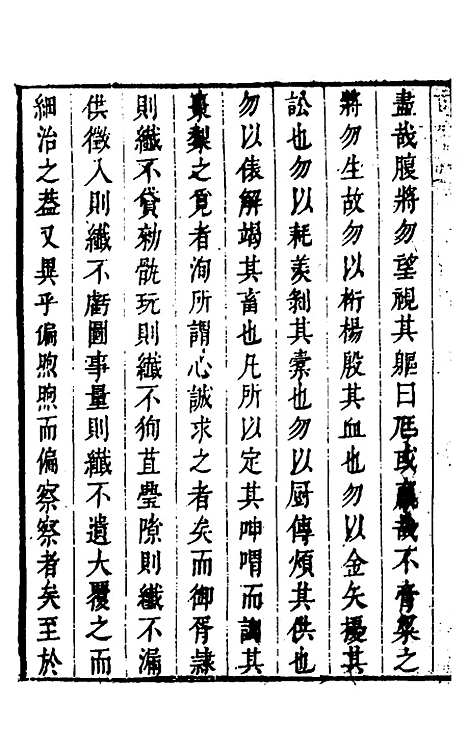 盡哉腹將勿望視其軀曰尫或羸哉不膏粲之
將勿生故勿以桁楊殷其血也勿以金矢擾其
訟也勿以耗羡剝其橐也勿以厨傳煩其供也
勿以俵解竭其畜也凡所以定其呻喟而調其
棗梨之覓者洵所謂心誠求之者矣而御胥隷
則纖不貸勑骩玩則纖不狥苴瑩隙則纖不漏
供徵入則纖不虧圖事量則纖不遺大覆之而
細治之葢又異乎偏煦煦而偏察察者矣至於